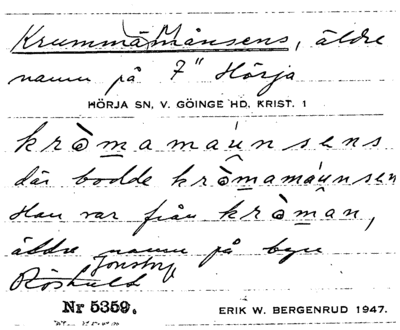 Krummämånsens, äldre
namn på 7" Hörja
HÖRJA SN, V. GÖINGE HD. KRIST. 1
kròmamáunsens
där bodde kròmamáunsen
Han var från kròman,
äldre namn på byn
Jonstorp
Röshult
Nr 5359.
ERIK W. BERGENRUD 1947.